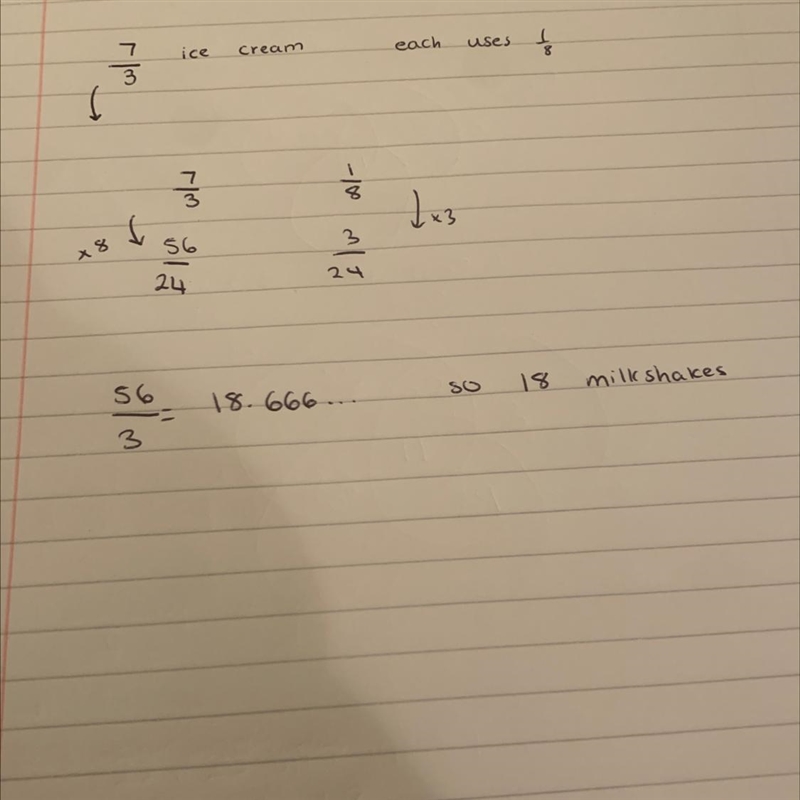 7/3 ice cream each uses 1/8
7/3 1/8
x8 56/24 3/24 x3
56/3 = 18.666... so 18 milkshakes